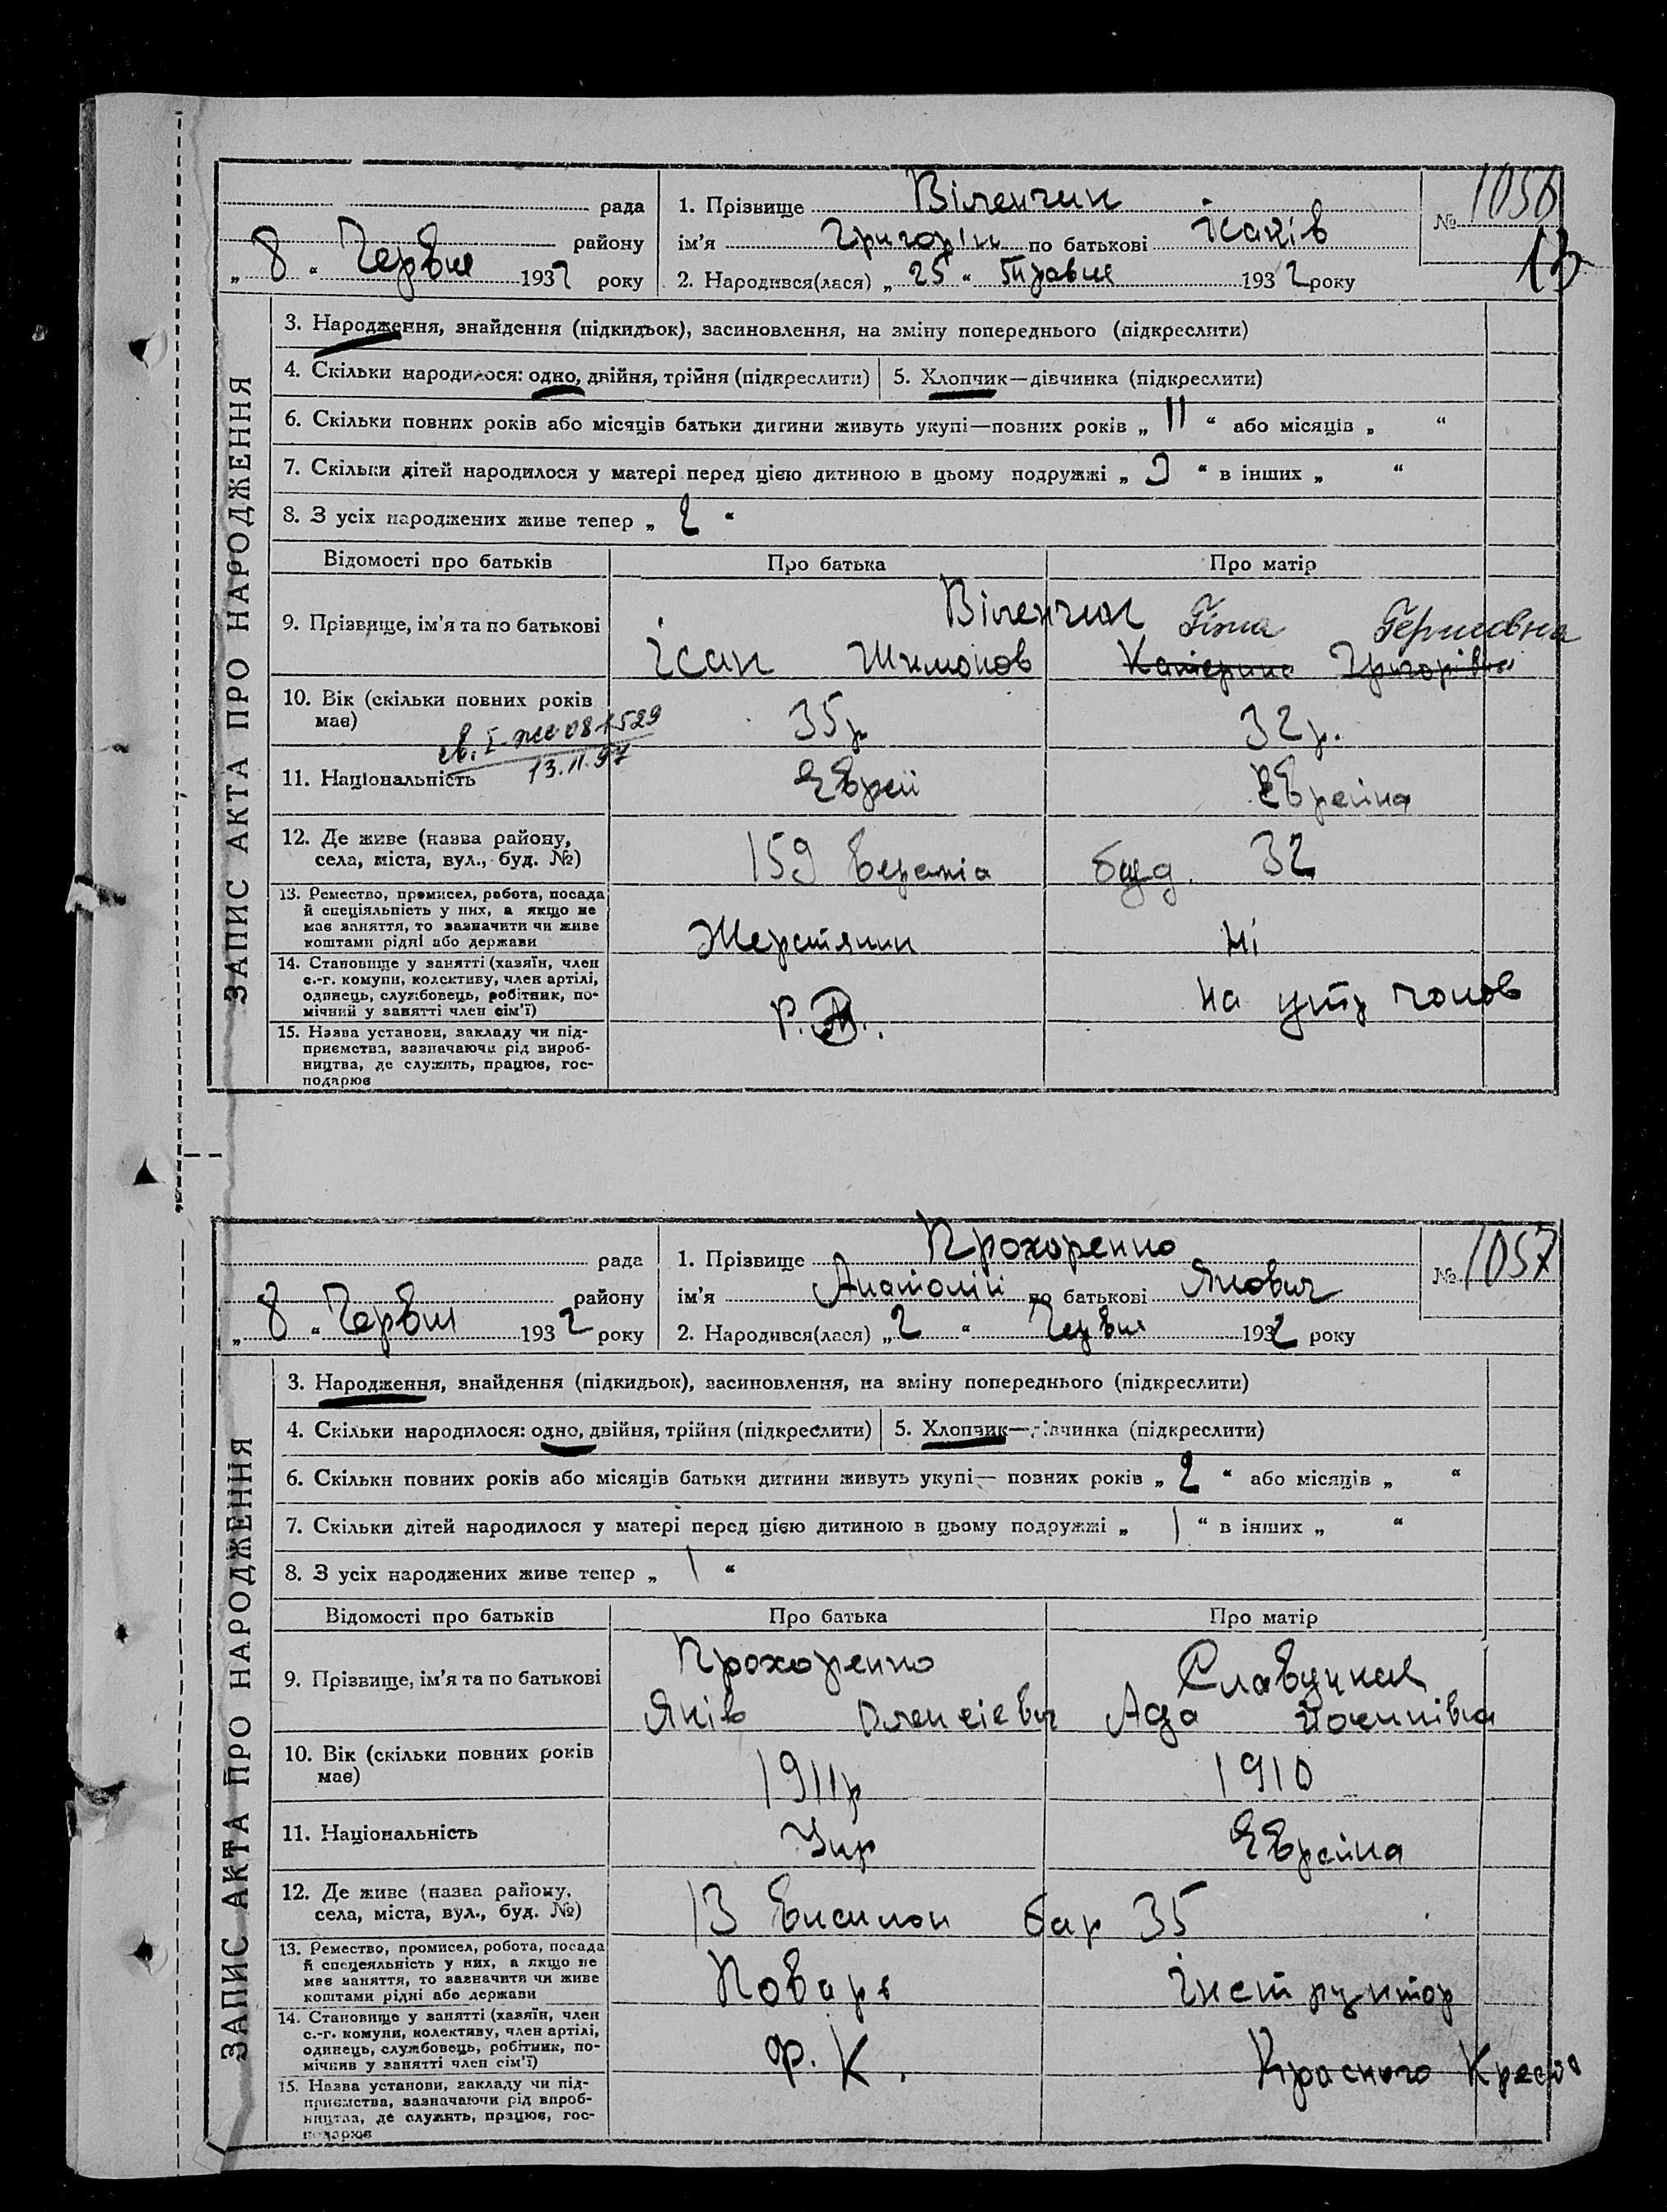 рада
району
„ 8 “ Червня 1932 року
1. Прізвище Віленчик
ім'я Григорій по батькові Ісаків
2. Народився(лася) „ 25 “ Травня 1932 року
№ 1056
13
ЗАПИС АКТА ПРО НАРОДЖЕННЯ
3. Народження, знайдення (підкидьок), засиновлення, на зміну попереднього (підкреслити)
4. Скільки народилося: одно, двійня, трійня (підкреслити) 5. Хлопчик—дівчинка (підкреслити)
6. Скільки повних років або місяців батьки дитини живуть укупі—повних років „ 11 “ або місяців „ “
7. Скільки дітей народилося у матері перед цією дитиною в цьому подружжі „ “ в інших „ “
8. З усіх народжених живе тепер „ 2 “
Відомості про батьків Про батька Про матір
Віленчик
9. Прізвище, ім'я та по батькові Гершовна
Ісак Шимонов Катерина Григорівна
10. Вік (скільки повних років має) 35р 32р.
13.11.97
11. Національність Еврей Еврейка
12. Де живе (назва району, села, міста, вул., буд. №) 159 буд. 32
13. Ремество, промисел, робота, посада й спеціяльність у них, а якщо не має заняття, то зазначити чи живе коштами рідні або держави Жерстяник Ні
14. Становище у занятті (хазяїн, член с.-г. комуни, колективу, член артілі, одинець, службовець, робітник, помічний у занятті член сім'ї) на утр
15. Назва установи, закладу чи підприємства, зазначаючи рід виробництва, де служить, працює, господарює
рада
району
„ 8 “ Червня 1932 року
1. Прізвище Прохоренко
ім'я Анатолій по батькові Якович
2. Народився(лася) „ 2 “ Червня 1932 року
№ 1057
ЗАПИС АКТА ПРО НАРОДЖЕННЯ
3. Народження, знайдення (підкидьок), засиновлення, на зміну попереднього (підкреслити)
4. Скільки народилося: одно, двійня, трійня (підкреслити) 5. Хлопчик—дівчинка (підкреслити)
6. Скільки повних років або місяців батьки дитини живуть укупі— повних років „ 2 “ або місяців „ “
7. Скільки дітей народилося у матері перед цією дитиною в цьому подружжі „ 1 “ в інших „ “
8. З усіх народжених живе тепер „ 1 “
Відомості про батьків Про батька Про матір
Прохоренко Славуцкая
9. Прізвище, ім'я та по батькові
Яків Олексієвич Ада Йосипівна
10. Вік (скільки повних років має) 1911р 1910
11. Національність Укр Еврейка
12. Де живе (назва району, села, міста, вул., буд. №) 13 Виселок бар 35
13. Ремество, промисел, робота, посада й спеціяльність у них, а якщо не має заняття, то зазначити чи живе коштами рідні або держави Поварь Інструктор
14. Становище у занятті (хазяїн, член с.-г. комуни, колективу, член артілі, одинець, службовець, робітник, помічник у занятті член сім'ї) Ф. К. Красного Креста
15. Назва установи, закладу чи підприємства, зазначаючи рід виробництва, де служить, працює, господарює